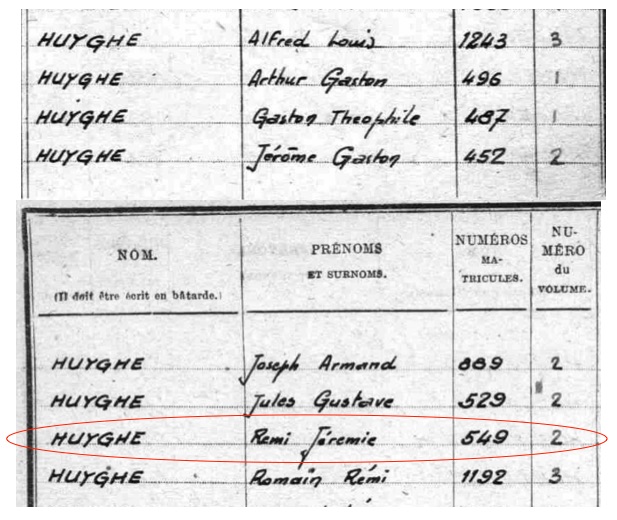 HUYGHE Alfred Louis 1243 3
HUYGHE Arthur Gaston 496 1
HUYGHE Gaston Theophile 487 1
HUYGHE Jérôme Gaston 452 2
NOM. PRÉNOMS NUMÉROS NU-
ET SURNOMS. MA- MÉRO
TRICULES. du
(Il doit être écrit en bâtarde.) VOLUME.
HUYGHE Joseph Armand 889 2
HUYGHE Jules Gustave 529 2
HUYGHE Remi Jéremie 549 2
HUYGHE Romain Rémi 1192 3